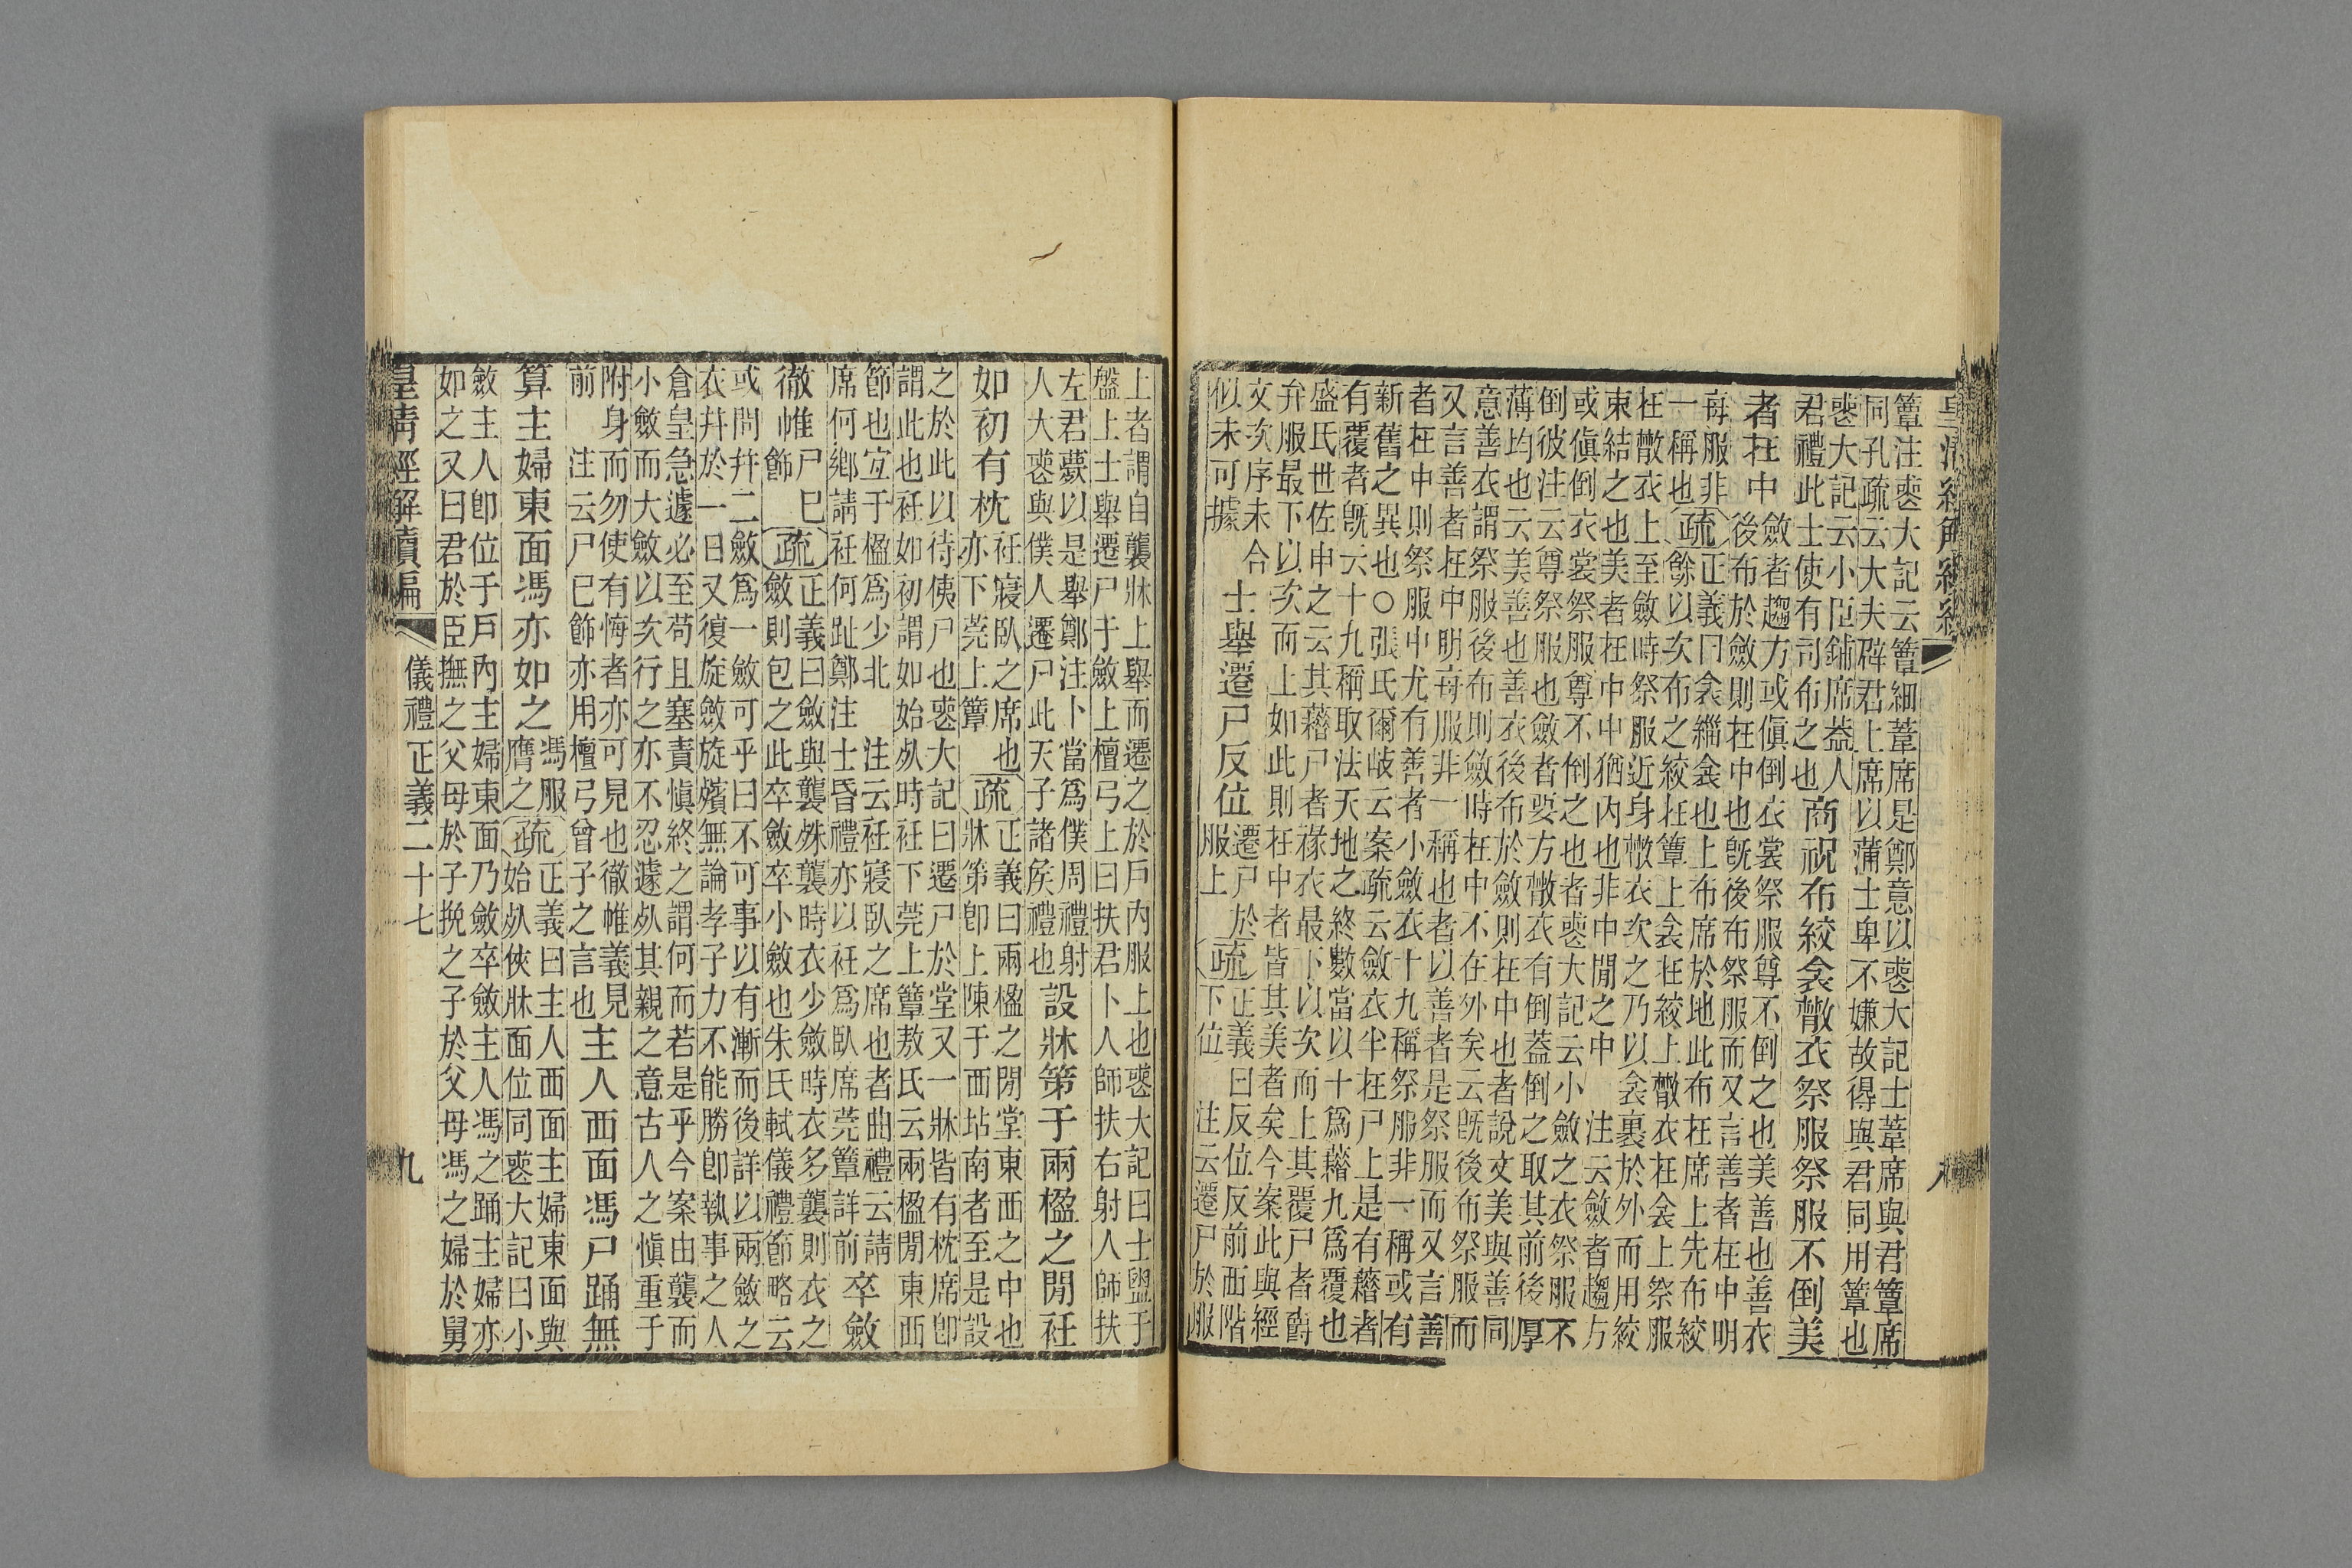 皇清經解續編
八
簟注喪大記云簟細葦席是鄭意以喪大記士葦席與君簟席
同孔疏云大夫辟君上席以蒲士卑不嫌故得與君同用簟也
喪大記云小臣鋪席蓋人
君禮此士使有司布之也
商祝布絞衾散衣祭服祭服不倒美
者在中
斂者趨方或傎倒衣裳祭服尊不倒之也美善也善衣
後布於斂則在中也既後布祭服而又言善者在中明
每服非
一稱也
疏
正義曰衾緇衾也上布席於地此布在席上先布絞
餘以次布之絞在簟上衾在絞上散衣在衾上祭服
在散衣上至斂時祭服近身散衣次之乃以衾裹於外而用絞
束結之也美者在中中猶內也非中閒之中 注云斂者趨方
或傎倒衣裳祭服尊不倒之也者喪大記云小斂之衣祭服不
倒彼注云尊祭服也斂者要方散衣有倒蓋倒之取其前後厚
薄均也云美善也善衣後布於斂則在中也者說文美與善同
意善衣謂祭服後布則斂時在中不在外矣云既後布祭服而
又言善者在中明每服非一稱也者以善者是祭服而又言善
者在中則祭服中尤有善者小斂衣十九稱祭服非一稱或有
新舊之異也○張氏爾岐云案疏云斂衣半在尸上是有藉者
有覆者既云十九稱取法天地之終數當以十爲藉九爲覆也
盛氏世佐申之云其藉尸者褖衣最下以次而上其覆尸者爵
弁服最下以次而上如此則在中者皆其美者矣今案此與經
文次序未合
似未可據
士舉遷尸反位
遷尸於
服上
疏
正義曰反位反前西階
下位 注云遷尸於服
上者謂自襲牀上舉而遷之於戶內服上也喪大記曰士盥于
盤上士舉遷尸于斂上檀弓上曰扶君卜人師扶右射人師扶
左君薨以是舉鄭注卜當爲僕周禮射
人大喪與僕人遷尸此天子諸侯禮也
設牀笫于兩楹之閒衽
如初有枕
衽寢臥之席也
亦下莞上簟
疏
正義曰兩楹之閒堂東西之中也
牀笫卽上陳于西坫南者至是設
之於此以待侇尸也喪大記曰遷尸於堂又一牀皆有枕席卽
謂此也衽如初謂如始死時衽下莞上簟敖氏云兩楹閒東西
節也宜于楹爲少北 注云衽寢臥之席也者曲禮云請
席何鄉請衽何趾鄭注士昏禮亦以衽爲臥席莞簟詳前
卒斂
徹帷
尸已
飾
疏
正義曰斂與襲殊襲時衣少斂時衣多襲則衣之
斂則包之此卒斂卒小斂也朱氏軾儀禮節略云
或問幷二斂爲一斂可乎曰不可事以有漸而後詳以兩斂之
衣幷於一日又復旋斂旋殯無論孝子力不能勝卽執事之人
倉皇急遽必至苟且塞責愼終之謂何而若是乎今案由襲而
小斂而大斂以次行之亦不忍遽死其親之意古人之愼重于
附身而勿使有悔者亦可見也徹帷義見
前 注云尸已飾亦用檀弓曾子之言也
主人西面馮尸踊無
算主婦東面馮亦如之
馮服
膺之
疏
正義曰主人西面主婦東面與
始死俠牀面位同喪大記曰小
斂主人卽位于戶內主婦東面乃斂卒斂主人馮之踊主婦亦
如之又曰君於臣撫之父母於子執之子於父母馮之婦於舅
皇清經解續編
儀禮正義二十七
九